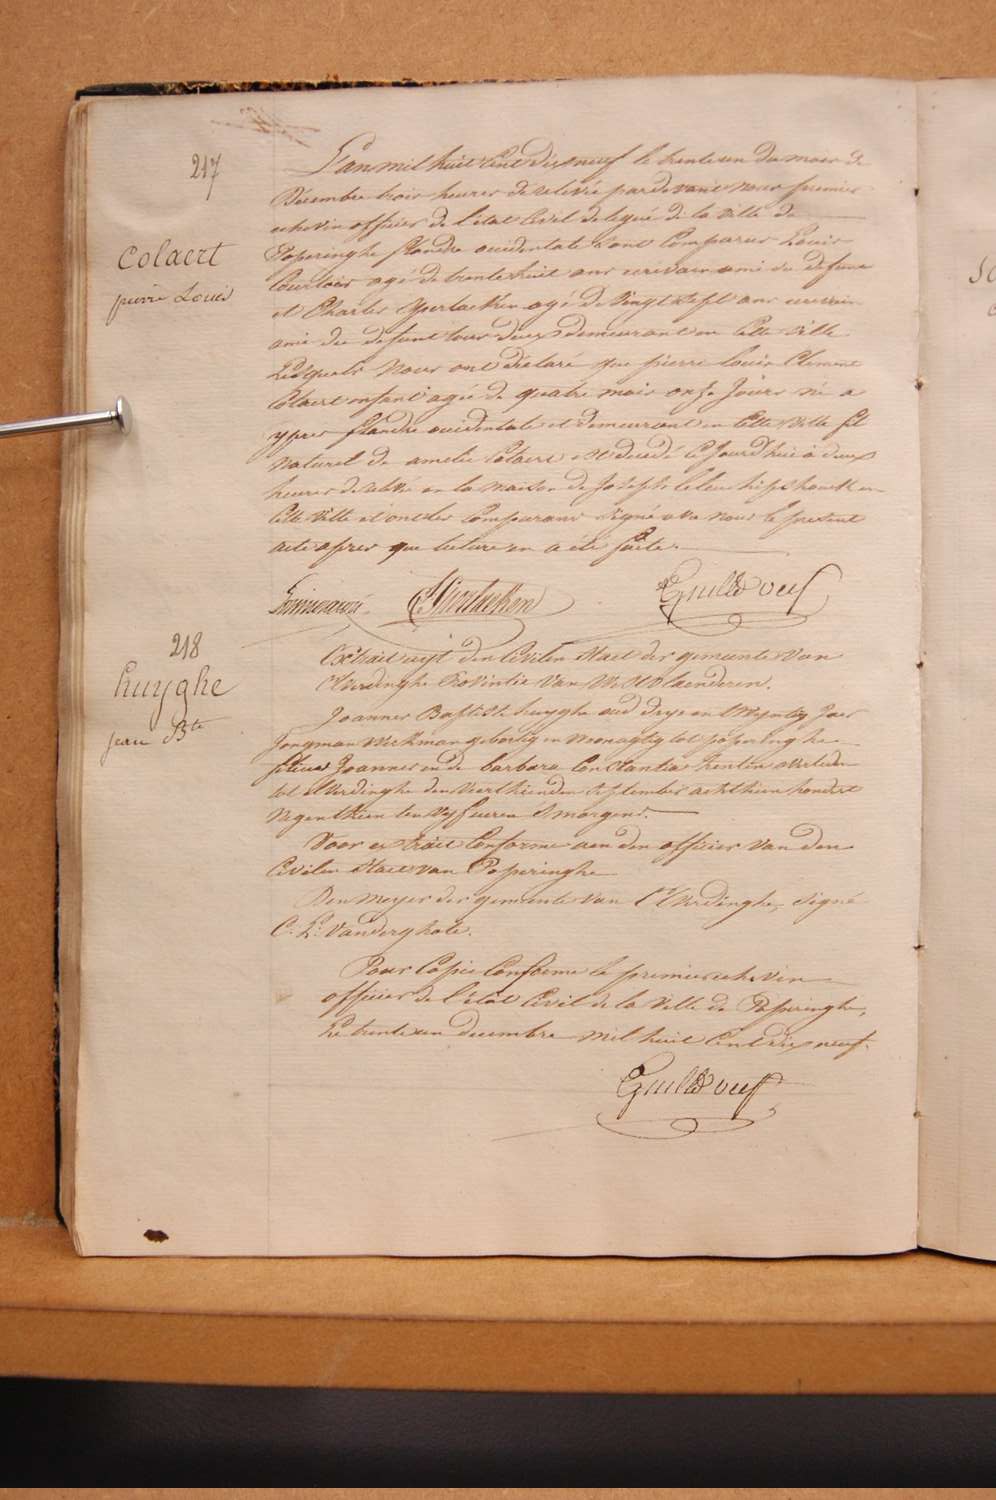 217
Colaert
pierre Louis
L'an mil huit Cent dix neuf le trente un du mois de
Décembre trois heures de relevé pardevant nous premier
echevin officier de l'état Civil delegué de la ville de
Poperinghe flandre occidentale sont Comparus Louis
Courtois agé de trente huit ans ecrivain ami du defunt
et Charles Yperlacken agé de vingt sept ans ecrivain
ami du defunt tous deux demeurant en Cette ville
Lesquels Nous ont déclaré que pierre Louis Clement
Colaert enfant agée de quatre mois onze Jours né a
ypres flandre occidentale et demeurant en Cette ville fil
naturel de amelie Colaert est decedé Ce Jourd'hui à deux
heures de relevé en la maison de Joseph en
Cette ville et ont les Comparans signé avec nous le present
acte apres que lecture en a été faite.
218
huyghe
jean Bte
Extrait uyt den Civilen staet der gemeente van
Elverdinghe Provintie van WestVlaenderen.
Joannes Baptiste huyghe oud drye en twyntig Jaer
Jongman Werkman gebortig en woonagtig tot poperinghe
filius Joannes en de barbara Constantia overleden
tot Elverdinghe den veerthienden september achthien hondert
Negenthien ten vyf ueren s'morgens.
Voor extrait Conforme aen den officier van den
Civilen staet van Poperinghe
Den meyer der gemeente van Elverdinghe, signé
C. L. Vanderghote.
Pour Copie Conforme le premier echevin
officier de l'état Civil de la ville de Poperinghe,
Le trente un decembre mil huit Cent dix neuf.